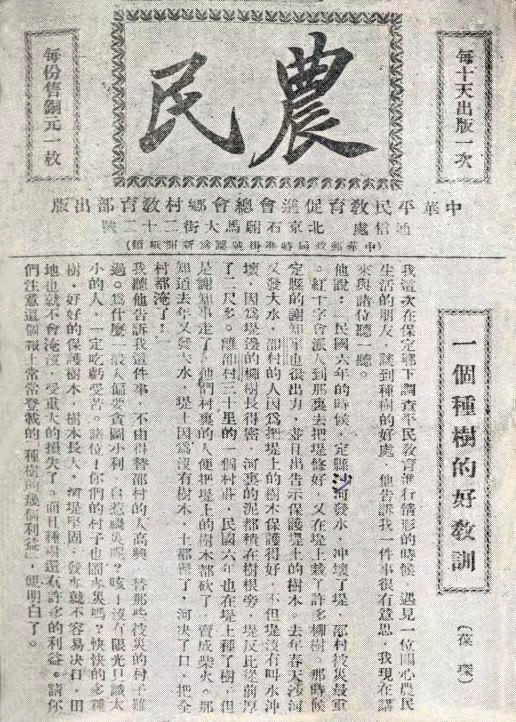 農民
每十天出版一次
每份售銅元一枚
中華平民教育促進會總會鄉村教育部出版
通信處 北京石駙馬大街二十二號
(中華郵政局特准掛號認為新聞紙類)
一個種樹的好教訓
(葆琛)
我這次在保定鄉下調查平民教育進行情形的時候，遇見一位關心農民
生活的朋友，談到種樹的好處，他告訴我一件事很有意思，我現在講
來與諸位聽一聽。
他說：「民國六年的時候，定縣沙河發水，冲壞了堤，邵村被災最重
。紅十字會派人到那裏去把堤修好，又在堤上栽了許多柳樹。那時候
定縣的謝知事也很出力，畫日出告示保護堤上的樹木。去年春天沙河
又發大水，邵村的人因為把堤上的樹木保護得好，不但堤沒有叫水冲
壞，因為堤邊的柳樹長得密，河裏的泥都積在樹根旁，堤反比從前厚
了二尺多。離邵村三十里的一個村莊，民國六年也在堤上種了樹，但
是謝知事走了，他們村裏的人便把堤上的樹木都砍了，賣成柴火。那
知道去年又發大水，堤上因為沒有樹木，土都鬆了，河決了口，把全
村都淹了！」
我聽他告訴我這件事，不由得替邵村的人高興，替那些被災的村子難
過。為什麼一般人偏要貪圖小利，自惹禍災呢？咳！沒有眼光只識太
小的人，一定吃虧受苦。諸位！你們的村子也鬧水災嗎？快快的多種
樹，好好的保護樹木，樹木長大，河堤堅固，發水就不容易決口，田
地也就不會淹沒，受重大的損失了。而且種樹還有許多的利益。請你
們注意這個報上常常登載的「種樹的幾個利益」，便明白了。